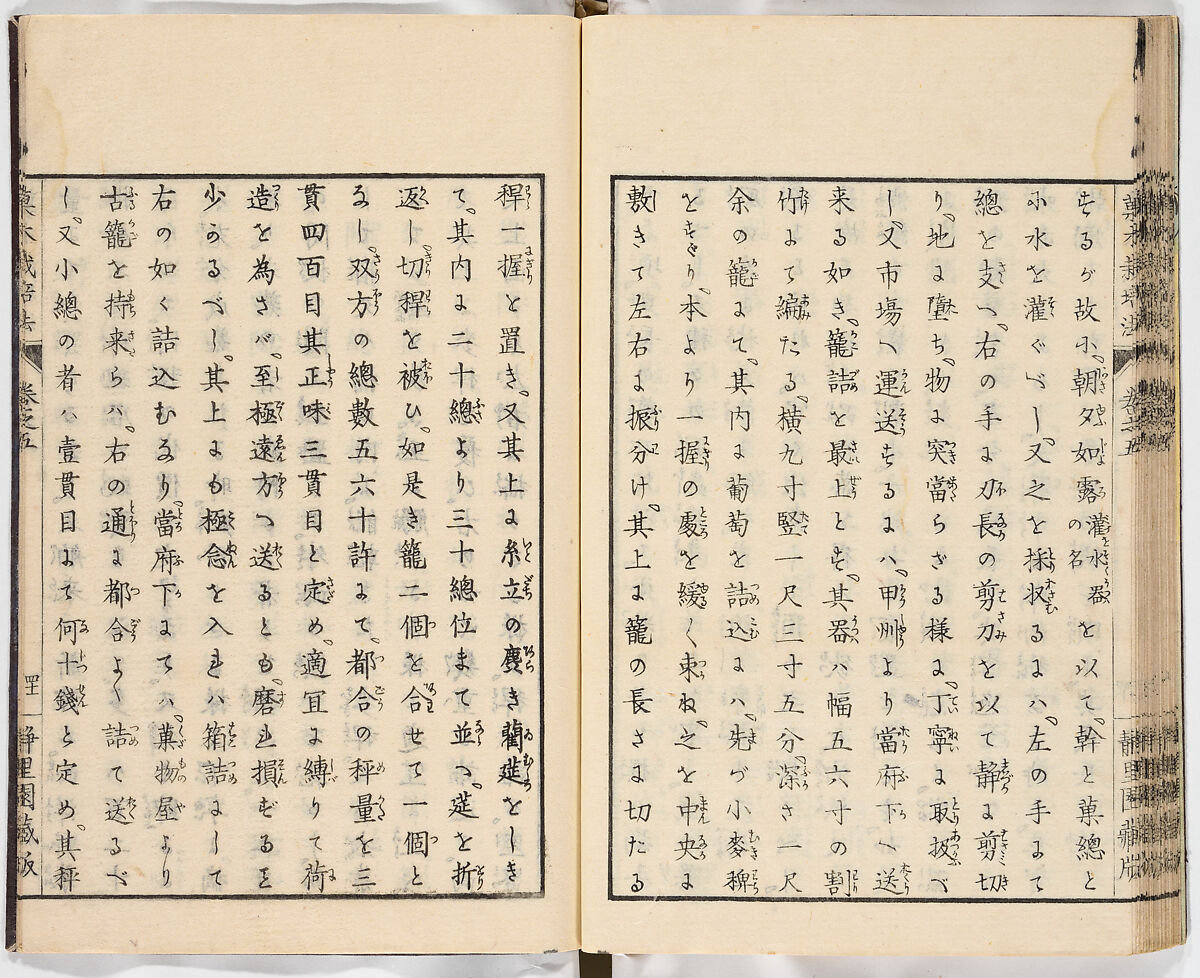 菓木栽培法 巻之五 靜里園藏版
せるが故に、朝夕如露灌水器の名を以て、幹と菓總と
に水を灌ぐべし、又之を採収るには、左の手にて
總を支へ、右の手に刃長の剪刀を以て静に剪切
り、地に墮ち、物に突當らざる様に、丁寧に取扱べ
し、又市塲へ運送するには、甲州より當府下へ送
来る如き、籠詰を最上とす、其器は幅五六寸の割
竹にて編たる、横九寸竪一尺三寸五分、深さ一尺
余の籠にて、其内に葡萄を詰込には、先づ小麥稗
をすぐり、本より一握の處を緩く束ね、之を中央に
敷きて左右に振分け、其上に籠の長さに切たる
稈一握と置き、又其上に糸立の麁き藺莚をしき
て、其内に二十總より三十總位まで並べ、莚を折
返し、切稈を被ひ、如是き籠二個を合せて一個と
なし、双方の總數五六十許にて、都合の秤量を三
貫四百目其正味三貫目と定め、適冝に縛りて荷
造を為さば、至極遠方へ送るとも磨れ損ずるを
少かるべし、其上にも極念を入れば箱詰にして
右の如く詰込むなり、當府下にては、菓物屋より
古籠を持来らば、右の通に都合よく詰て送るべ
し、又小總の者は壹貫目にて何十錢と定め、其秤
菓木栽培法 巻之五 靜里園藏版